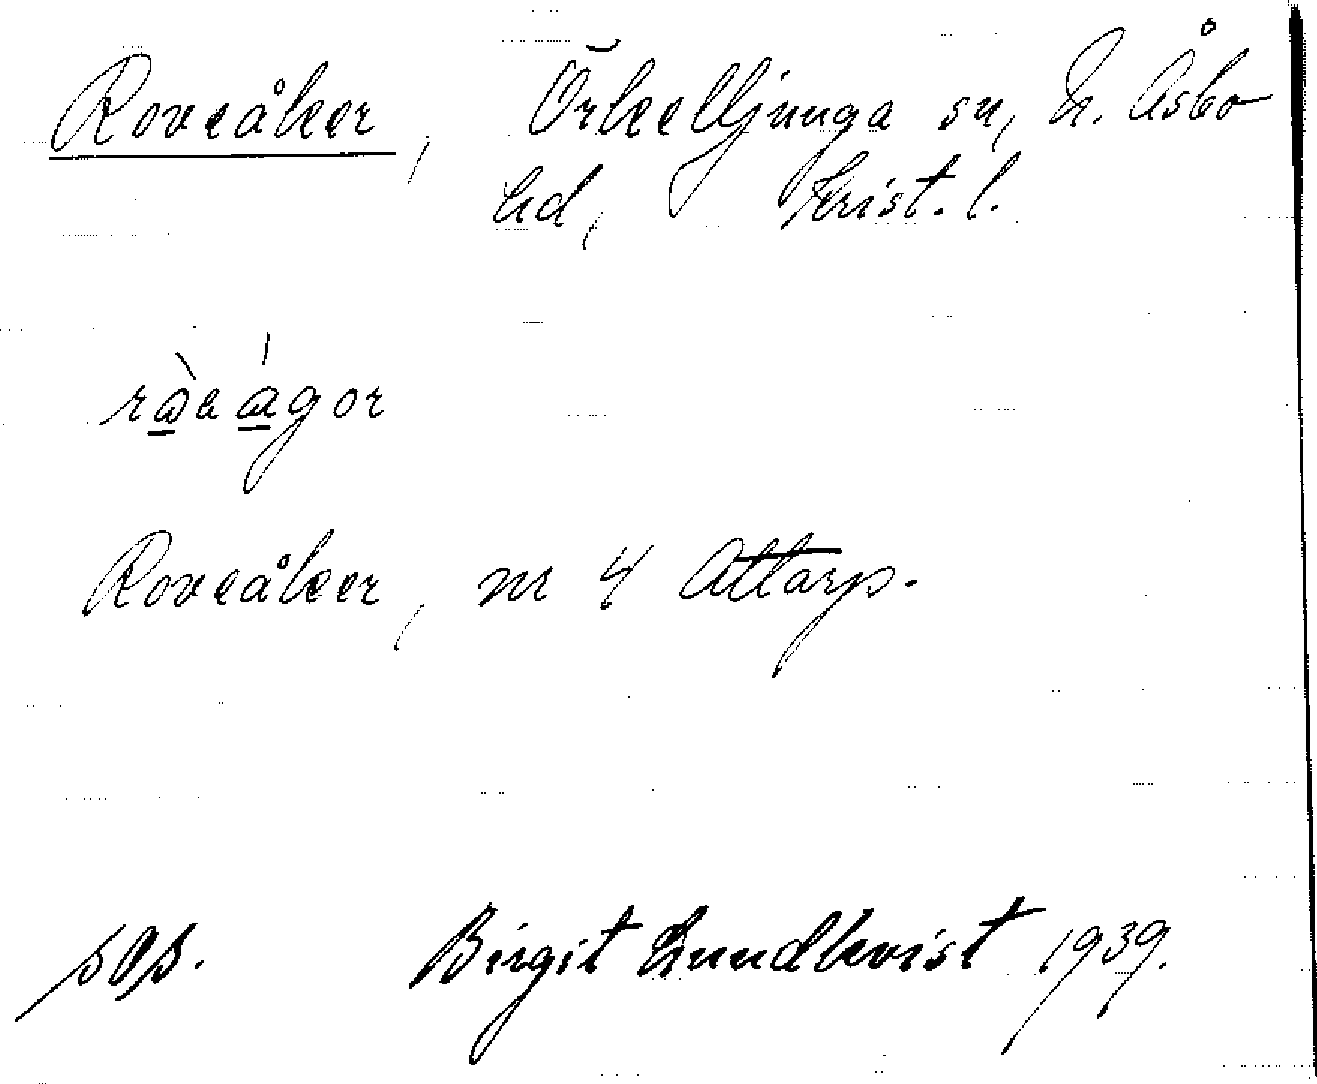 Roveåker, Örkelljunga sn, N. Åsbo
hd, Krist. l.
ràeágor
Roveåker, nr 4 Attarp.
sÅs. Birgit Lundkvist 1939.